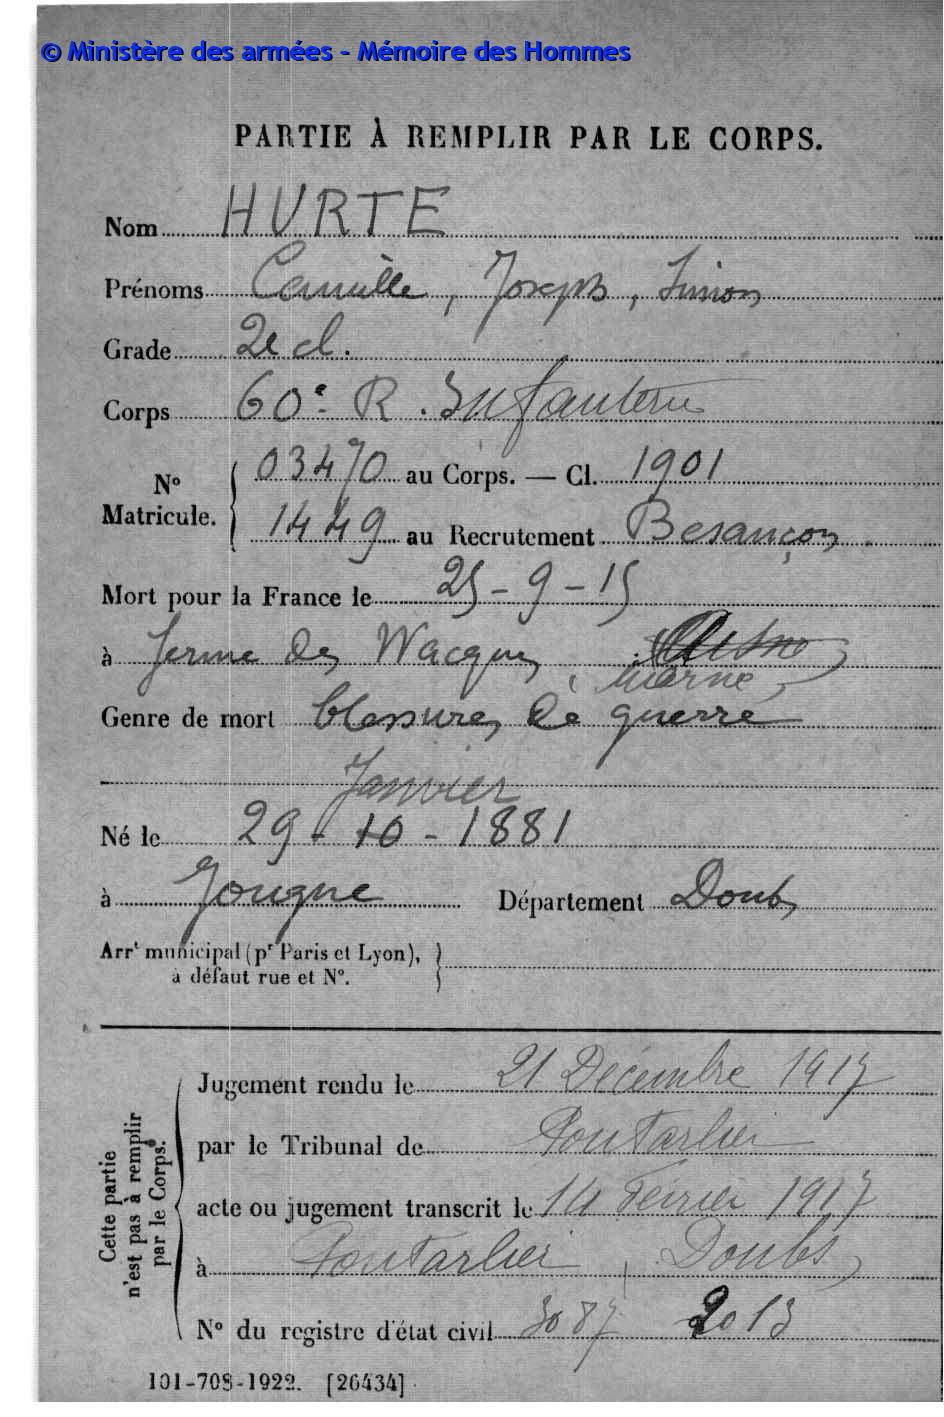 © Ministère des armées - Mémoire des Hommes
PARTIE À REMPLIR PAR LE CORPS.
Nom HURTE
Prénoms Camille, Joseph, Simon
Grade 2e cl.
Corps 60e R. Infanterie
No Matricule. 03470 au Corps. — Cl. 1901
1449 au Recrutement Besançon.
Mort pour la France le 25-9-15
à ferme des Wacques,
Marne
Genre de mort blessures de guerre
Janvier
Né le 29-10-1881
à Jougne Département Doubs
Arrt municipal (pr Paris et Lyon),
à défaut rue et No.
Cette partie n'est pas à remplir par le Corps.
Jugement rendu le 21 Décembre 1917
par le Tribunal de Pontarlier
acte ou jugement transcrit le 14 Février 1917
à Pontarlier, Doubs
No du registre d'état civil 3087 2013
101-708-1922. [26434]